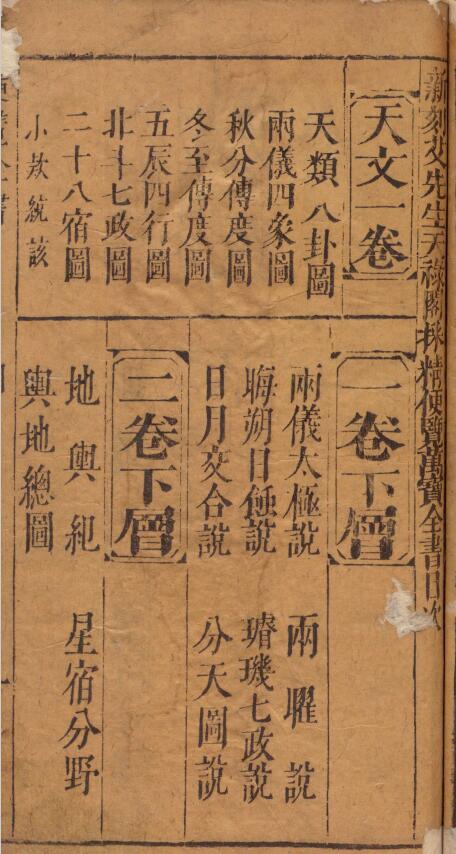 新刻艾先生天祿閣採精便覽萬寶全書目次
天文一卷
天類八卦圖
兩儀四象圖
秋分傳度圖
冬至傳度圖
五辰四行圖
北斗七政圖
二十八宿圖
小款統該
一卷下層
兩儀太極說 兩曜說
晦朔日蝕說 璿璣七政說
日月交合說 分天圖說
二卷下層
地輿紀 星宿分野
輿地總圖